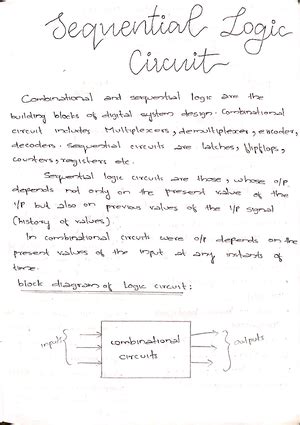 Sequential Logic
Circuit
Combinational and sequential logic are the
building blocks of digital system design. Combinational
circuit includes Multiplexors, demultiplexer, encoder,
decoders. Sequential circuits are latches, flipflops,
counters, registers etc.
Sequential logic circuits are those, whose o/p
depends not only on the present value of the
i/p but also on previous values of the i/p signal
(history of values).
In combinational circuits were o/p depends on the
present values of the input at any instants of
time.
block diagram of logic circuit:
inputs
combinational
circuits
outputs